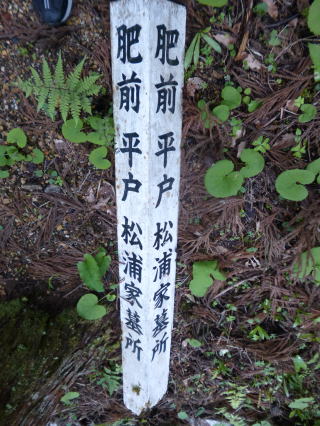 肥前平戸松浦家墓所
肥前平戸松浦家墓所